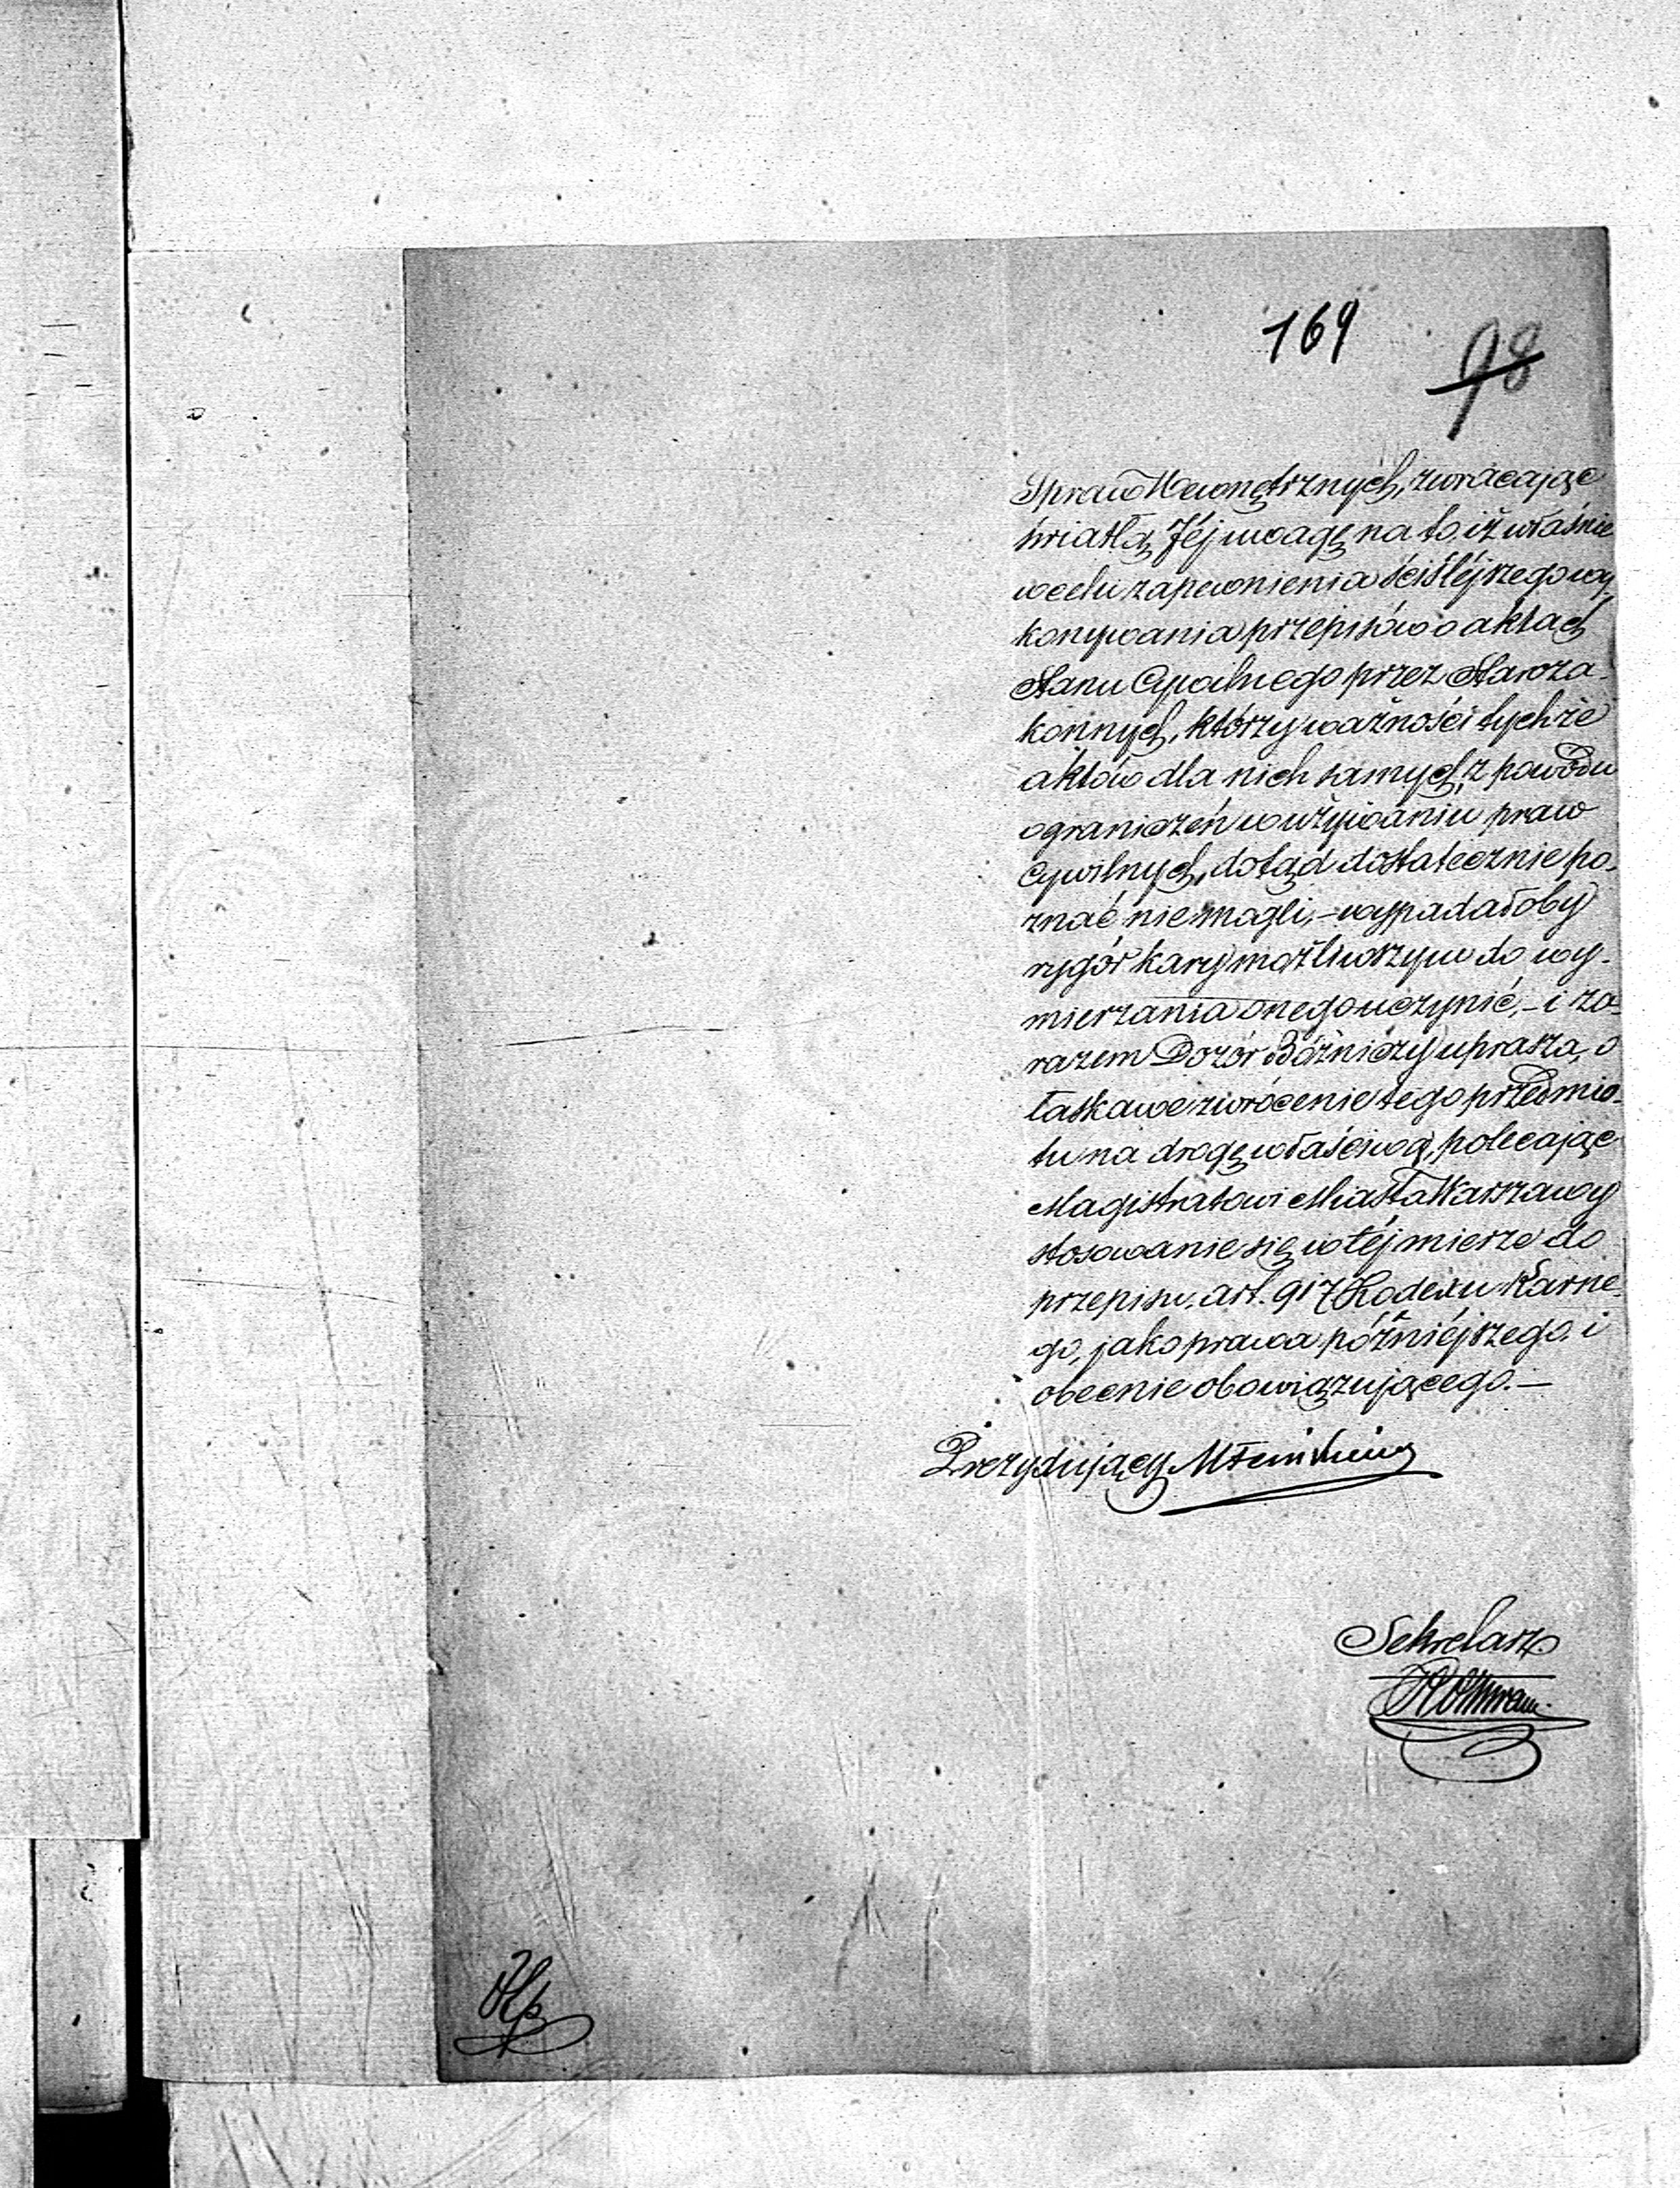 169
98
Spraw Wewnętrznych, zwracając
światłą Jéj uwagę na to, iż właśnie
w celu zapewnienia ściśléjszego wy-
konywania przepisów o aktach
Stanu Cywilnego przez Staroza-
konnych, którzy ważności tychże
aktów dla nich samych, z powodu
ograniczeń w używaniu praw
Cywilnych, dotąd dostatecznie po-
znać nie mogli, – wypadałoby
rygór kary możliwszym do wy-
mierzania onego uczynić, – i za-
razem Dozór Bóżniczy uprasza, o
łaskawe zwrócenie tego przedmio-
tu na drogę właściwą, polecając
Magistratowi Miasta Warszawy
stosowanie się w téj mierze do
przepisu art. 917 Kodexu Karne-
go, jako prawa późniéjszego i
obecnie obowiązującego. –
Prezydujący
Sekretarz